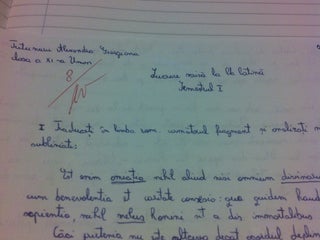 Georgiana
clasa a XI-a Uman
8
Lucrare scrisă la lb. latină
Semestrul I
I Traduceți în limba rom. următorul fragment și analizați
subliniate:
Est enim amicitia nihil aliud nisi omnium divinar
cum benevolentia et caritate consensio: qua quidem haud
sapientia, nihil melius homini sit a dis immortalibus
Căci prietenia nu este altceva decât